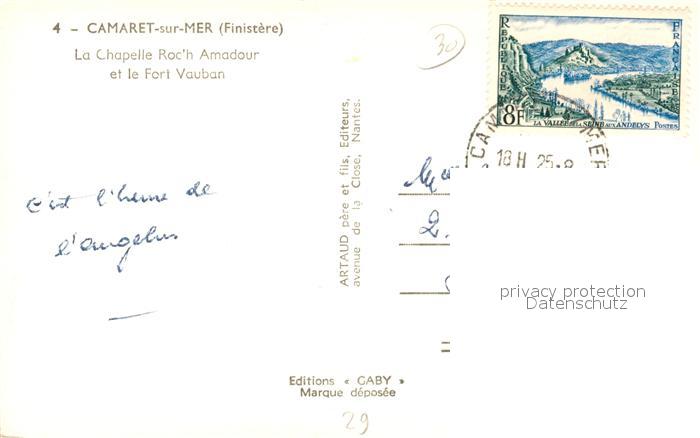 4 - CAMARET-sur-MER (Finistère)
La Chapelle Roc'h Amadour
et le Fort Vauban
30
REPUBLIQUE
FRANÇAISE
8F
LA VALLÉE DE LA SEINE AUX ANDELYS POSTES
CAM MER
18H 25-8
c'est l'heure de
l'angelus
ARTAUD père et fils, Editeurs,
avenue de la Close, Nantes.
2.
privacy protection
Datenschutz
Editions « GABY »
Marque déposée
29